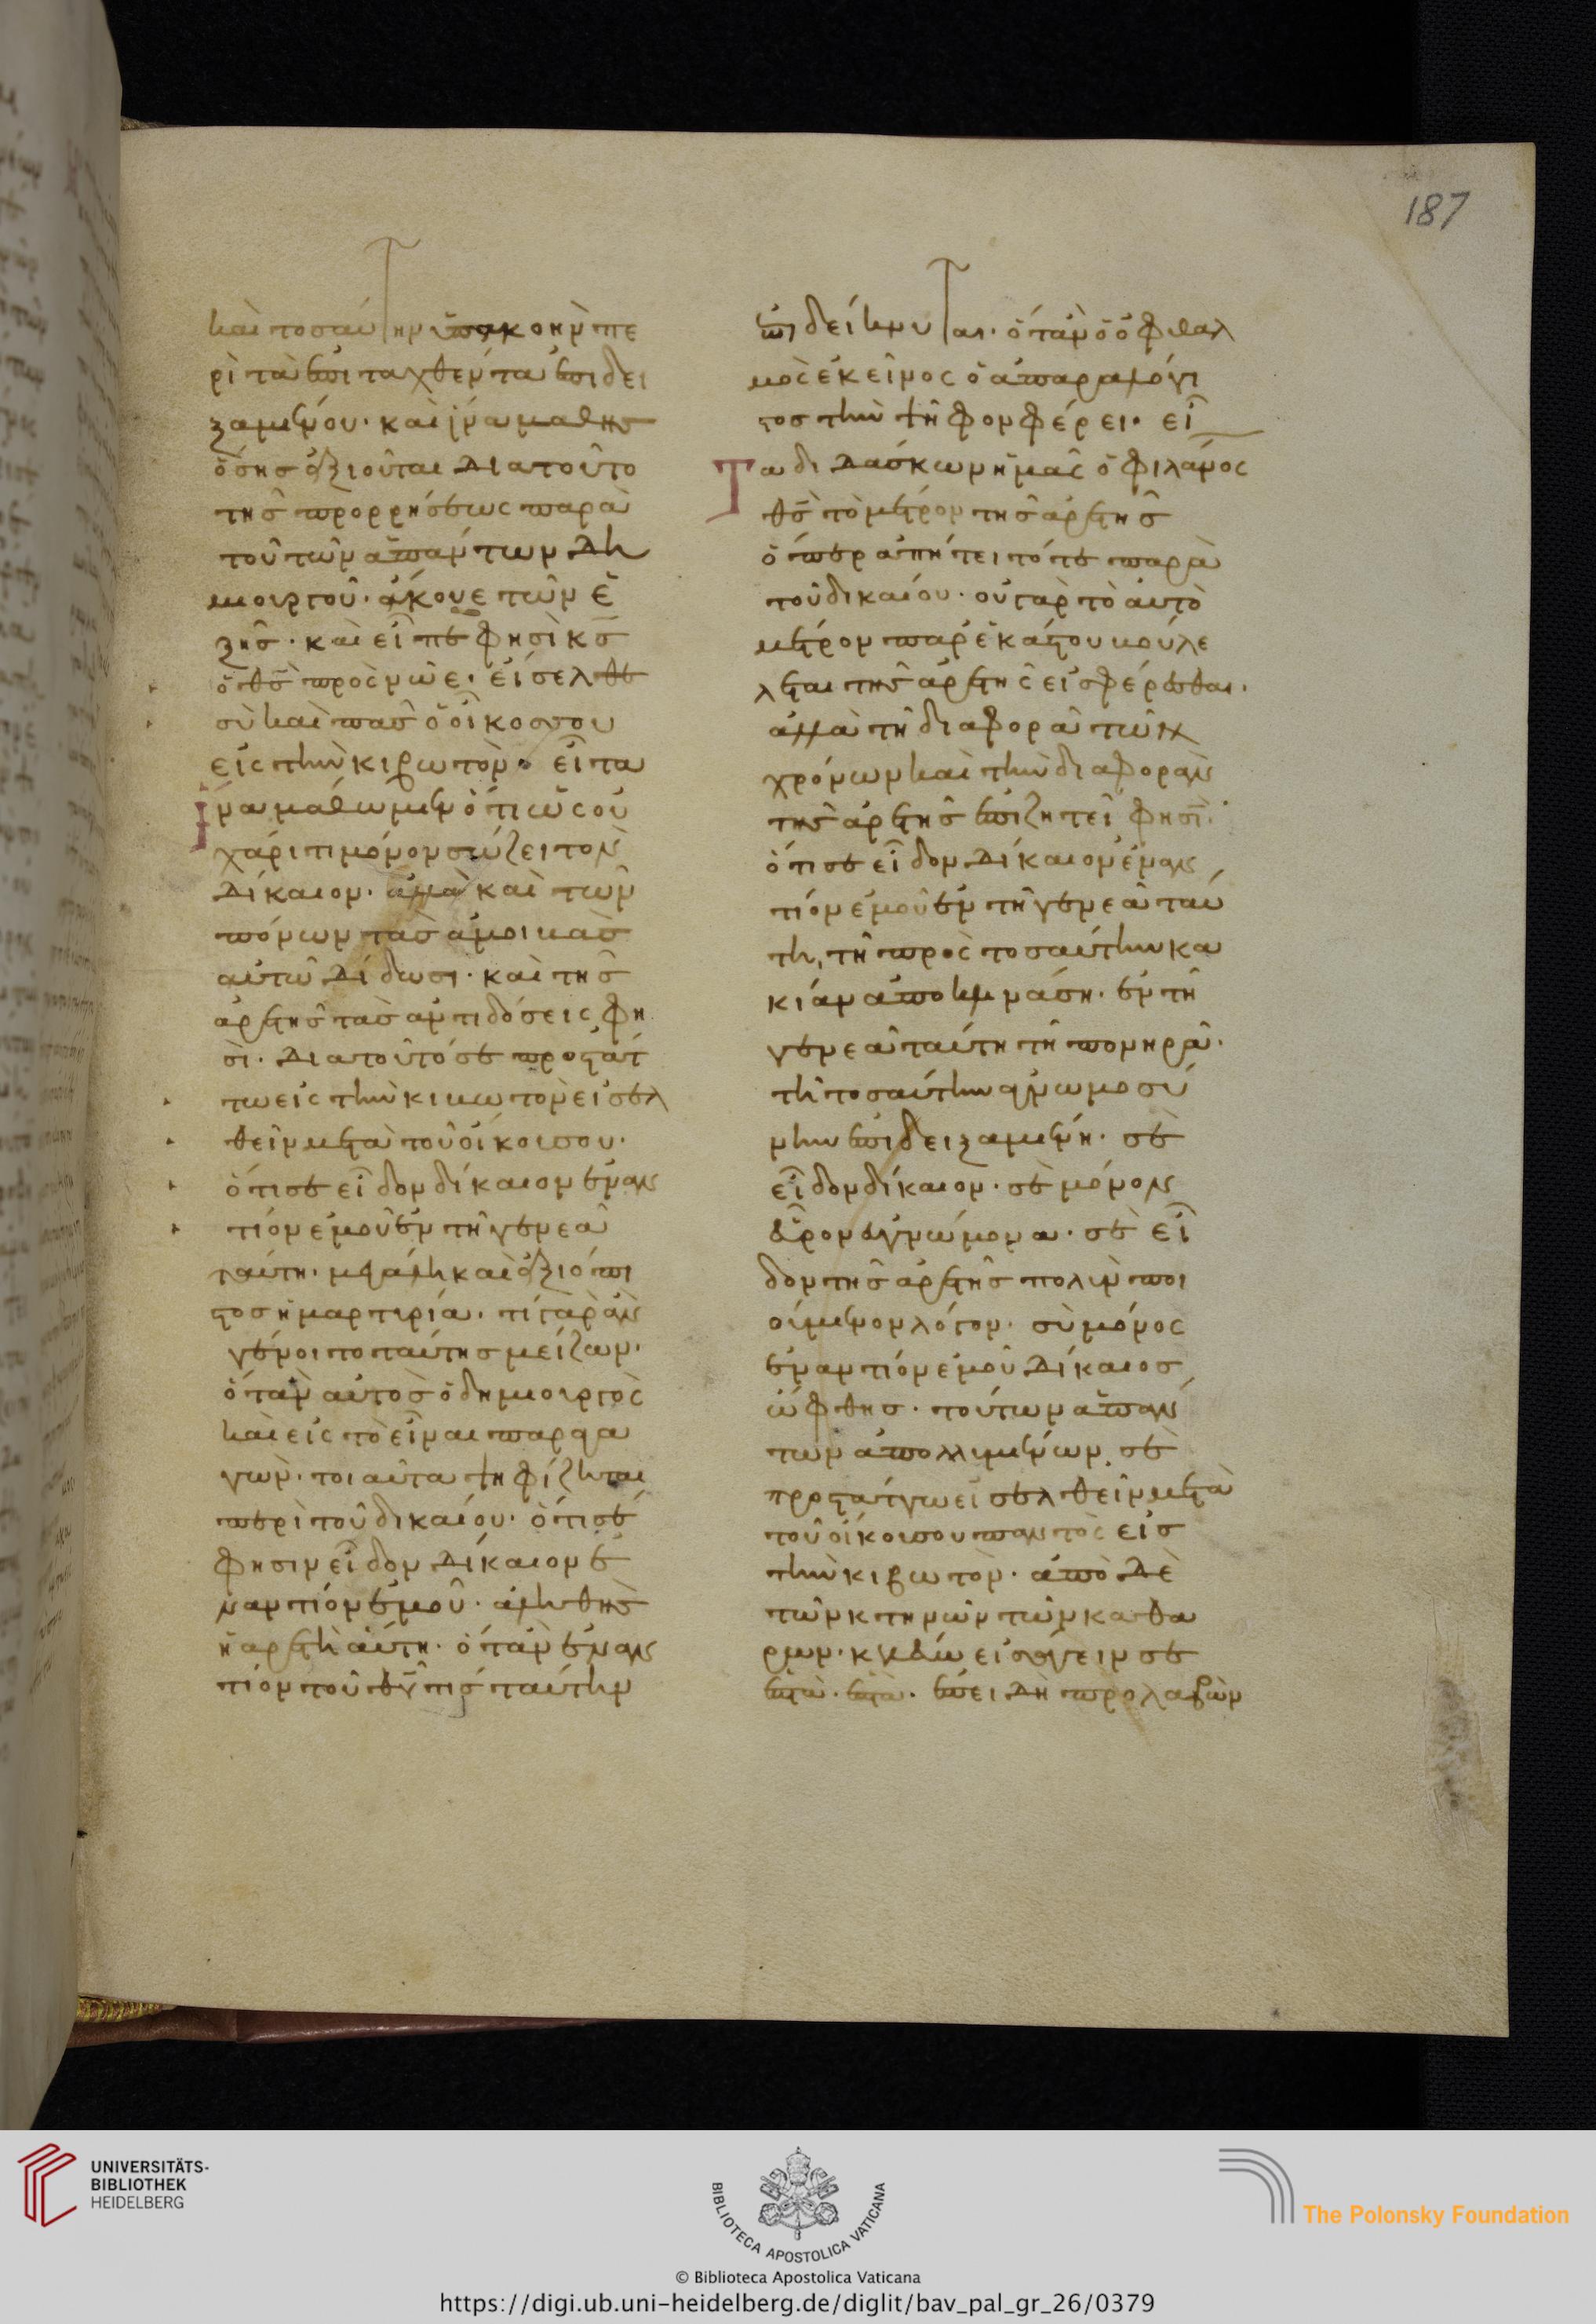 187
καὶ τοσαύτην ὑπακοὴν πε
ρὶ τὰ ἐπιταχθέντα ἐπιδει
ξαμένου· καὶ ἵνα μαθης
ὅσης ἀξιοῦται διατοῦτο
τῆς προρρήσεως παρὰ
τοῦ τῶν ἁπάντων δη
μιουργοῦ· ἄκουε τῶν ἑ
ξῆς· καὶ εἶπε φησὶ κς
ὁ θς πρὸς νῶε· εἴσελθε
σὺ καὶ πας ὁ οἶκος σου
εἰς τὴν κιβωτὸν· εἶτα
ἵνα μαθωμεν ὅτι ὡς οὐ
χάριτι μόνον σώζει τὸν
δίκαιον· ἀλλὰ καὶ τῶν
πόνων τὰς ἀμοιβὰς
αὐτῶ δίδωσι· καὶ τῆς
ἀρετῆς τὰς ἀντιδόσεις φη
σὶ· διατοῦτό σε προστάτ
τω εἰς τὴν κιβωτὸν εἰσελ
θεῖν μετὰ τοῦ οἴκου σου·
ὅτι σε εἶδον δίκαιον ἐναν
τίον ἐμοῦ ἐν τῆ γενεᾶ
ταύτη· μεγάλη καὶ ἀξιόπι
στος ἡ μαρτυρία· τί γὰρ ἂν
γένοιτο ταύτης μείζων·
ὅταν αὐτὸς ὁ δημιουργὸς
καὶ εἰς τὸ εἶναι παραγα
γὼν· τοιαῦτα ψηφίζηται
περὶ τοῦ δικαίου· ὅτι σέ
φησιν εἶδον δίκαιον ἐ
ναντίον ἐμοῦ· ἀληθὴς
ἡ ἀρετὴ αὕτη· ὅταν ἐναν
τίον τοῦ θυ τὶς ταύτην
ἐπιδείκνυται· ὅταν ὁ ὀφθαλ
μὸς ἐκεῖνος ὁ ἀπαραλόγι
στος τὴν ψῆφον φέρει· εἶ
τα διδάσκων ἡμᾶς ὁ φιλάνος
θς τὸ μέτρον τῆς ἀρετῆς
ὅπερ ἀπήτει τότε παρὰ
τοῦ δικαίου· οὐ γὰρ τὸ αὐτὸ
μέτρον παρ' ἑκάστου βούλε
λεται τῆς ἀρετῆς εἰσφέρεσθαι·
ἀλλὰ τῆ διαφορᾶ τῶν
χρόνων καὶ τὴν διαφορὰν
τῆς ἀρετῆς ἐπιζητεῖ φησὶ·
ὅτι σε εἶδον δίκαιον ἐναν
τίον ἐμοῦ ἐν τῆ γενεᾶ ταύ
τη, τῆ πρὸς τοσαύτην κα
κίαν ἀποκλινάση· ἐν τῆ
γενεᾶ ταύτη τῆ πονηρᾶ·
τῆ τοσαύτην ἀγνωμοσύ
νην ἐπιδειξαμένη· σὲ
εἶδον δίκαιον· σὲ μόνον
εὗρον εὐγνώμονα· σὲ εἶ
δον τῆς ἀρετῆς πολὺν ποι
ούμενον λόγον· σὺ μόνος
ἐναντίον ἐμοῦ δίκαιος
ὤφθης· τούτων ἁπάν
των ἀπολλυμένων, σὲ
προστάττω εἰσελθεῖν μετὰ
τοῦ οἴκου σου παντὸς εἰς
τὴν κιβωτὸν· ἀπὸ δὲ
τῶν κτηνῶν τῶν καθα
ρῶν· κελεύω εἰσάγειν σε
ἑπτὰ· ἑπτὰ· ἐπειδὴ προλαβὼν
UNIVERSITÄTS-
BIBLIOTHEK
HEIDELBERG
BIBLIOTECA APOSTOLICA VATICANA
The Polonsky Foundation
© Biblioteca Apostolica Vaticana
https://digi.ub.uni-heidelberg.de/diglit/bav_pal_gr_26/0379